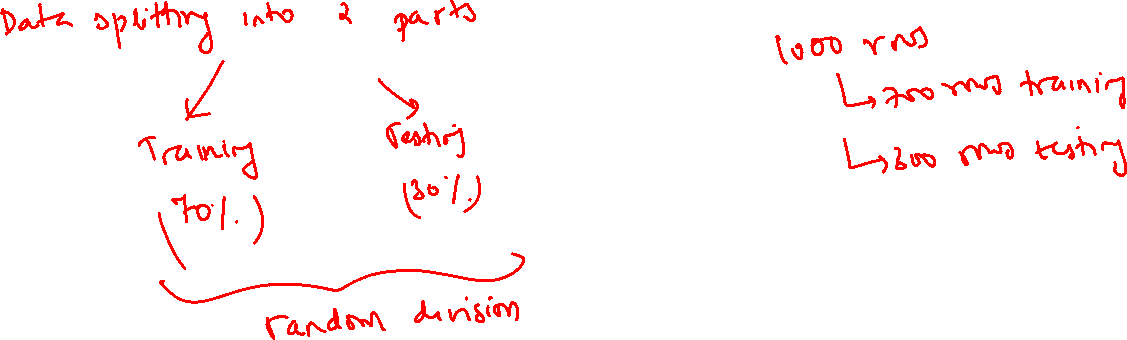 Data splitting into 2 parts
Training
(70%.)
Testing
(30%.)
random division
1000 rows
700 rows training
300 rows testing